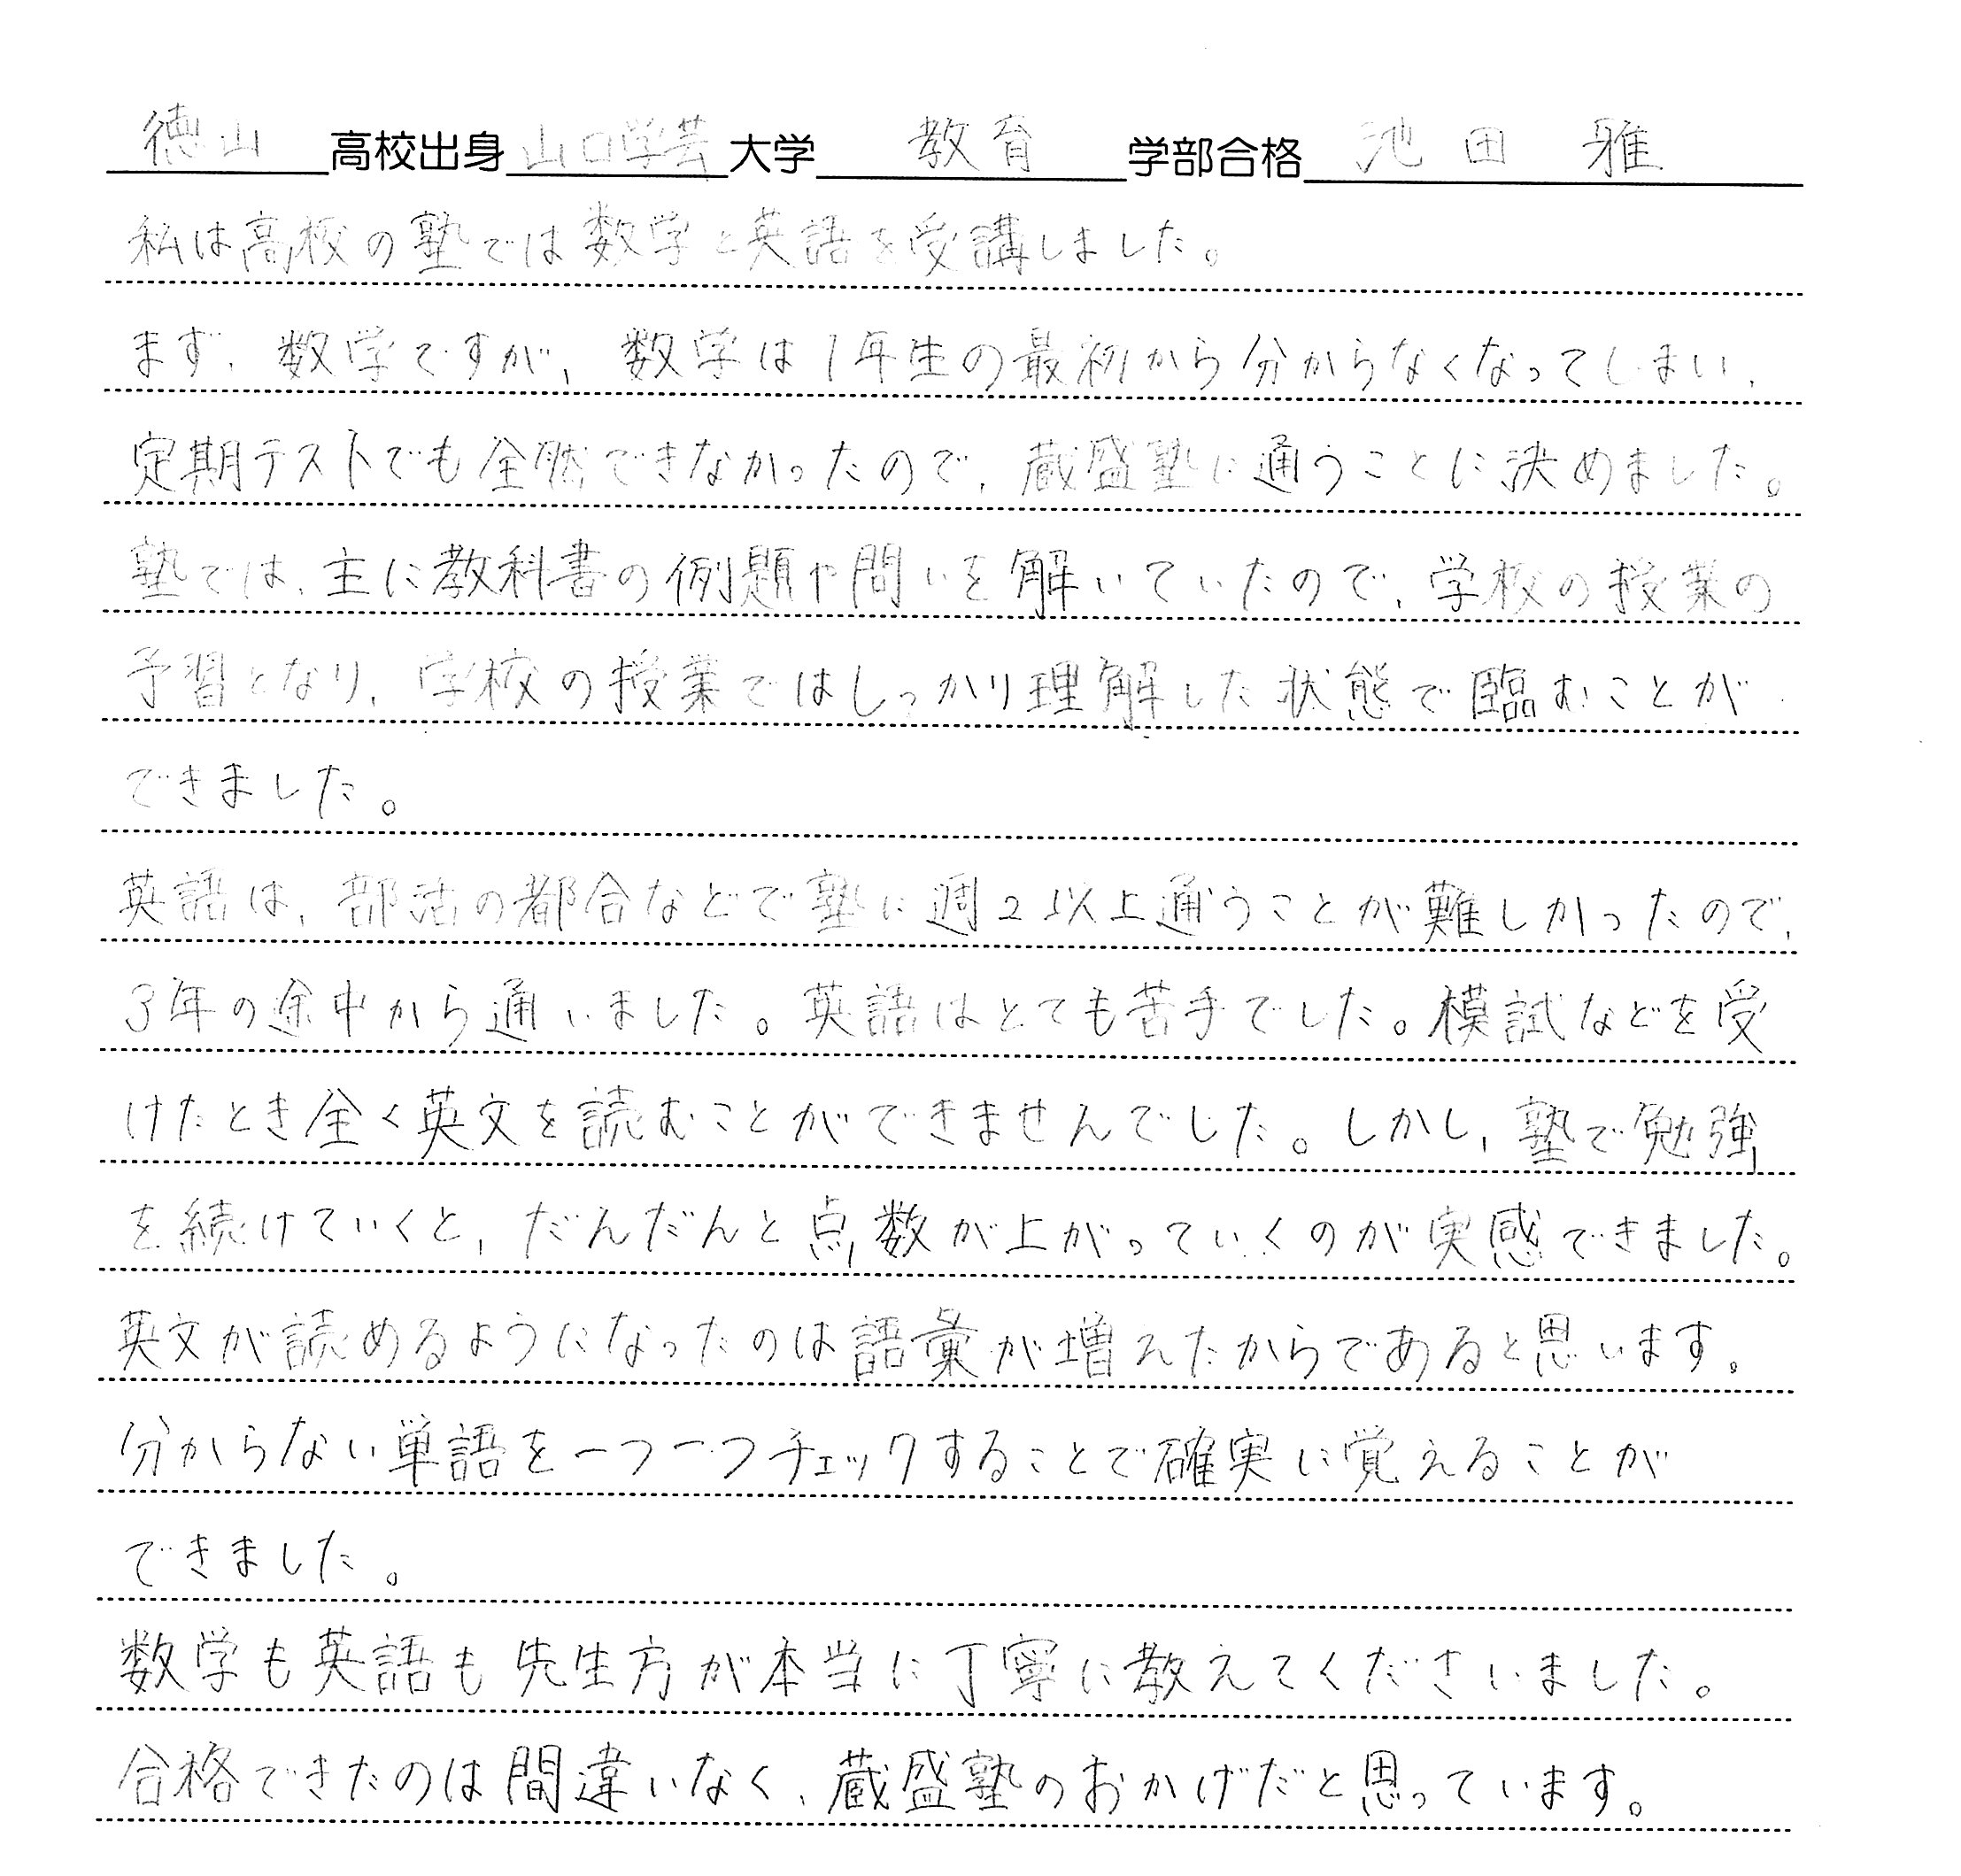 徳山 高校出身 山口学芸 大学 教育 学部合格 池田 雅
私は高校の塾では数学と英語を受講しました。
まず、数学ですが、数学は1年生の最初から分からなくなってしまい、
定期テストでも全然できなかったので、蔵盛塾に通うことに決めました。
塾では、主に教科書の例題や問いを解いていたので、学校の授業の
予習となり、学校の授業ではしっかり理解した状態で臨むことが
できました。
英語は、部活の都合などで塾に週2以上通うことが難しかったので、
3年の途中から通いました。英語はとても苦手でした。模試などを受
けたとき全く英文を読むことができませんでした。しかし、塾で勉強
を続けていくと、だんだんと点数が上がっていくのが実感できました。
英文が読めるようになったのは語彙が増えたからであると思います。
分からない単語を一つ一つチェックすることで確実に覚えることが
できました。
数学も英語も先生方が本当に丁寧に教えてくださいました。
合格できたのは間違いなく、蔵盛塾のおかげだと思っています。